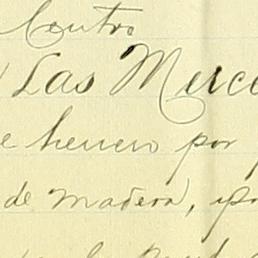 Centro
Las Merce
e herrero por
de madera,